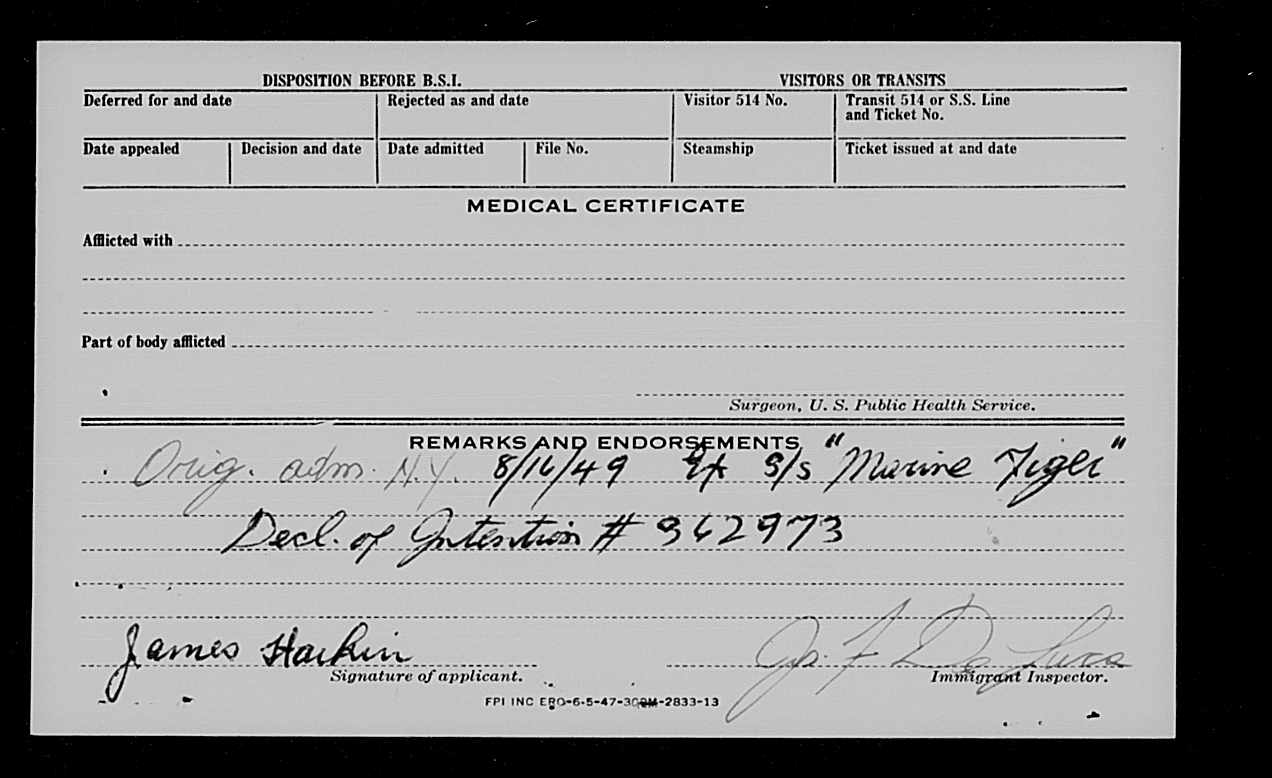 DISPOSITION BEFORE B.S.I. VISITORS OR TRANSITS
Deferred for and date Rejected as and date Visitor 514 No. Transit 514 or S.S. Line
and Ticket No.
Date appealed Decision and date Date admitted File No. Steamship Ticket issued at and date
MEDICAL CERTIFICATE
Afflicted with
Part of body afflicted
Surgeon, U. S. Public Health Service.
REMARKS AND ENDORSEMENTS
Orig. adm. N.Y. 8/16/49 Ex S/S "Marine Tiger"
Decl. of Intention # 362973
James Harkin
Signature of applicant. Immigrant Inspector.
FPI INC ERO-6-5-47-300M-2833-13